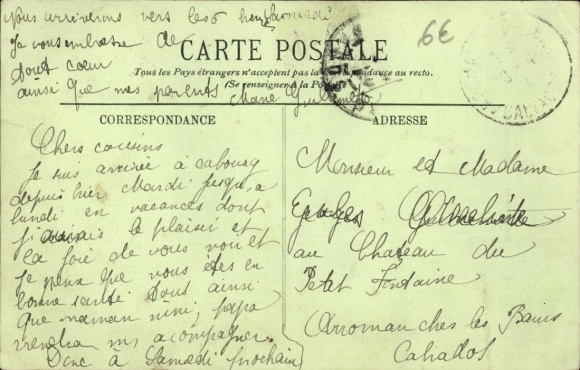 Nous arriverons vers les 6 heures samedi
Je vous embrasse de
tout coeur
ainsi que mes parents Marie
6€
CARTE POSTALE
Tous les Pays étrangers n'acceptent pas la Correspondance au recto.
(Se renseigner à la Poste)
CORRESPONDANCE
Chers cousins
Je suis arrivée à cabourg
depuis hier Mardi jusqu,a
lundi en vacances dont
j aurais le plaisir et
la joie de vous voir et
Je pense que vous êtes en
bonne santé Tous ainsi
que maman nini, papa
viendra m, acompagner.
Donc à Samedi prochain
ADRESSE
Monsieur et Madame
Georges
au Chateau du
Petit Fontaine
Arromanches les Bains
Calvados